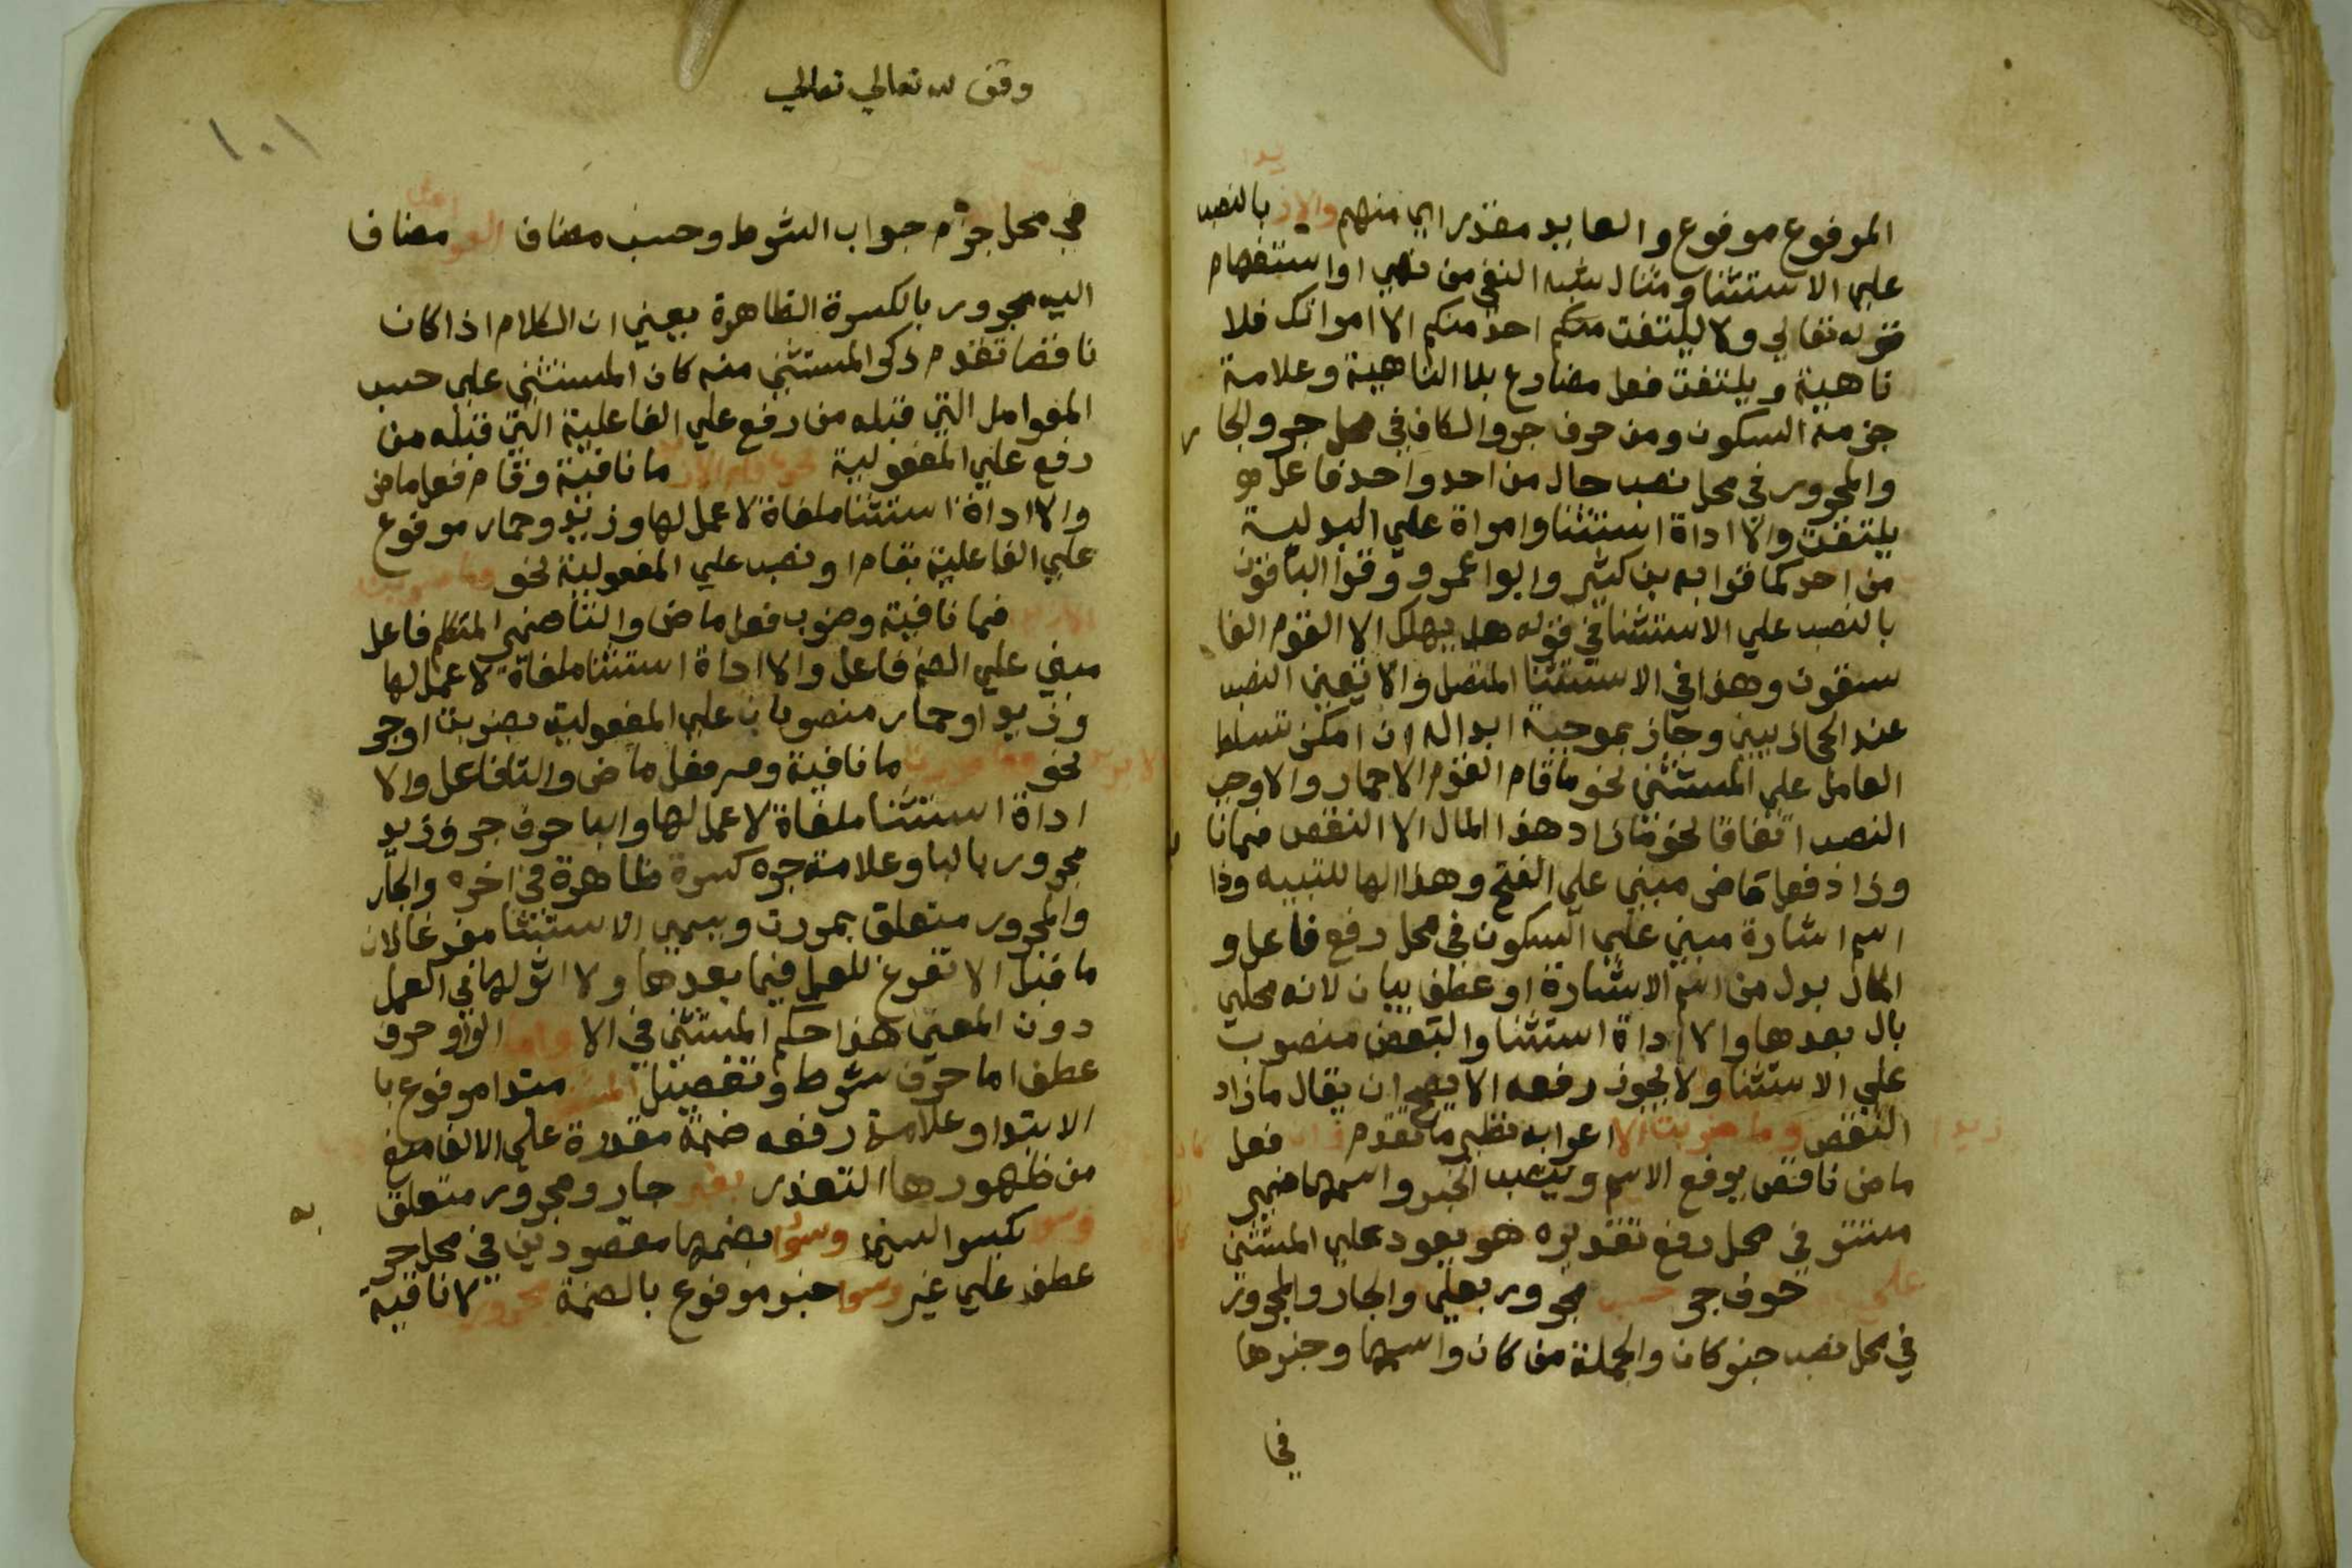 المرفوع مرفوع والعايد مقدر اي منهم والا زيدا بالنصب
علي الاستثنا ومثال شبه النفي من نهي او استفهام
قوله تعالي ولا يلتفت منكم احد منكم الا امراتك فلا
ناهية ويلتفت فعل مضارع بلا الناهية وعلامة
جزمه السكون ومن حرف جر والكاف في محل جر والجار
والمجرور في محل نصب حال من احد واحد فاعل
يلتفت والا اداة استثنا وامراة علي البدلية
من احد كما قرا به بن كثير وابوا عمرو وقرا الباقون
بالنصب علي الاستثنا في قوله هل يهلك الا القوم الفا
سقون وهذا في الاستثنا المتصل والا تعين النصب
عند الحجازيين وجاز بموجبة ابداله ان امكن تسلط
العامل علي المستثني نحو ما قام القوم الا حمار والا وجب
النصب اتفاقا نحو ما زاد هذا المال الا النقص فما نا
وزاد فعل ماض مبني علي الفتح وهذا الها للتنبيه وذا
اسم اشارة مبني علي السكون في محل رفع فاعل و
المال بدل من اسم الاشارة او عطف بيان لانه محلي
بال بعدها والا اداة استثنا والنقص منصوب
علي الاستثنا ولا يجوز رفعه الا يصح ان يقال ما زاد
النقص وما ضربت الا زيدا اعرابه نظير ما تقدم فعل
ماض ناقص يرفع الاسم وينصب الخبر واسمها ضمير
مستتر في محل رفع تقديره هو يعود علي المستثني
علي حرف جر حسب مجرور بعلي والجار والمجرور
في محل نصب خبر كان والجملة من كان واسمها وخبرها
في
وقف لله تعالي تعالي
١٠١
في محل جزم جواب الشرط وحسب مضاف العوامل مضاف
اليه مجرور بالكسرة الظاهرة يعني ان الكلام اذا كان
ناقصا تقدم ذكر المستثني منه كان المستثني علي حسب
العوامل التي قبله من رفع علي الفاعلية التي قبله من
رفع علي المفعولية نحو ما نافية وقام فعل ماض
والا اداة استثنا ملغاة لا عمل لها وزيد وحمار مرفوع
علي الفاعلية بقام او نصب علي المفعولية نحو وما ضربت
الا زيدا فما نافية وضرب فعل ماض والتا ضمير المتكلم فاعل
مبني علي الضم فاعل والا اداة استثنا ملغاة لا عمل لها
وزيدا وحمار منصوبان علي المفعولية بضربت او جر
نحو وما مررت الا بزيد ما نافية ومر فعل ماض والتا فاعل والا
اداة استثنا ملغاة لا عمل لها والبا حرف جر وزيد
مجرور بالبا وعلامة جره كسرة ظاهرة في اخره والجار
والمجرور متعلق بمررت ويسمي الاستثنا مفرغا لان
ما قبل الا تفرغ للعمل فيما بعدها ولا اثر لها في العمل
دون المعني هذا حكم المستثني في الا واما الواو حرف
عطف اما حرف شرط وتفصيل المستثني مبتدا مرفوع با
الابتدا وعلامة رفعه ضمة مقدرة علي الالف منع
من ظهورها التعذر بغير جار ومجرور متعلق
به
وسوي بكسر السين وسوا بضمها مقصورين في محل جر
عطف علي غير وسوا خبر مرفوع بالضمة مجرور لا نافية